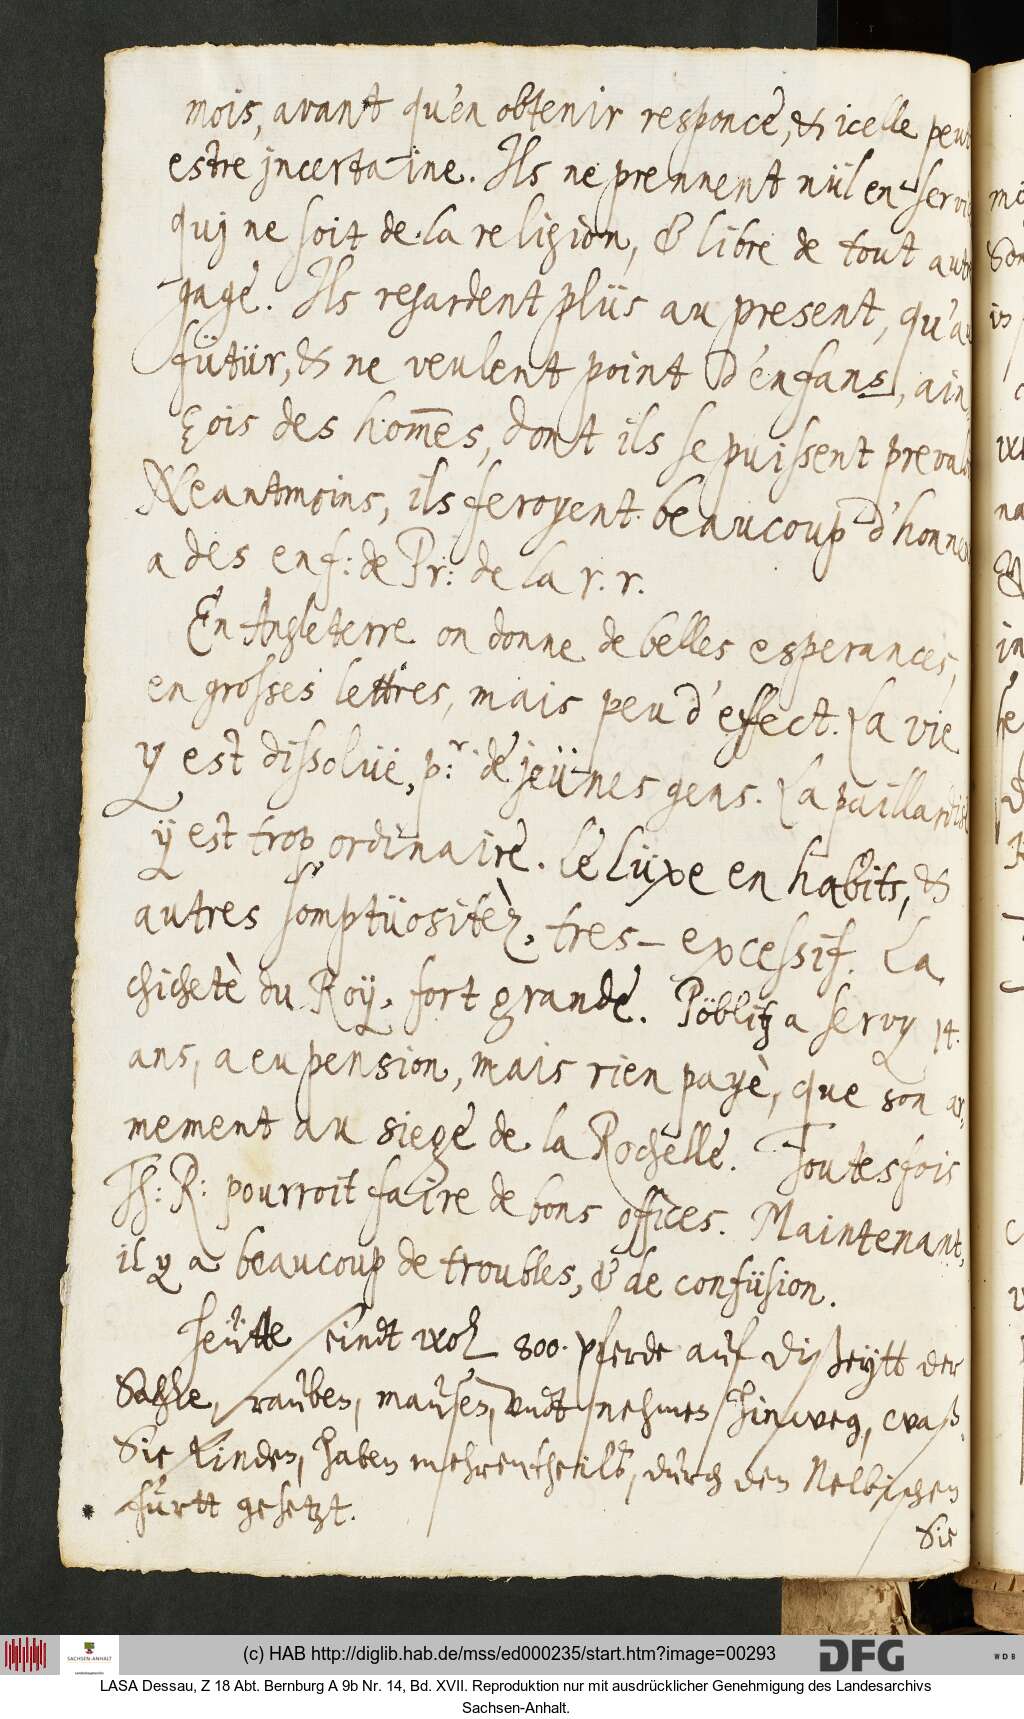 mois, avant qu'en obtenir responce, & icelle peut
estre jncertaine. Ils ne prennent nül en servi
quj ne soit de la religion, & libre de tout autr
gage. Ils regardent plüs au present, qu'au
fütür, & ne veulent point d'enfans, ain,
çois des hom̄es, dont ils se puissent preval
Neantmoins, ils feroyent beaucoup d'honne
a des enf: de Pr: de la r. r.
En Angleterre on donne de belles esperances,
en grosses lettres, mais peu d'effect. La vie
y est dissolüe, p:r de jeünes gens. La paillardise
ÿ est trop ordinaire. le lüxe en habits, &
autres somptüositèz, tres-excessif. La
chichetè du Roÿ, fort grande. Pöblitz a servy 14.
ans, a eu pension, mais rien payè, que son ar,
mement au siege de la Rochelle. Toutesfois
Th: R: pourroit faire de bons offices. Maintenant,
il y a beaucoup de troubles, & de confüsion.
heütte sindt wol 800. pferde auf diß seytt der
Sahle, rauben, mausen, vndt nehmen hinweg, waß
Sie finden, haben mehrentheilß, durch den Nelbischen
furtt gesetzt.
Sie
mo
Son
in
na
in
(c) HAB http://diglib.hab.de/mss/ed000235/start.htm?image=00293
SACHSEN-ANHALT
DFG
WDB
LASA Dessau, Z 18 Abt. Bernburg A 9b Nr. 14, Bd. XVII. Reproduktion nur mit ausdrücklicher Genehmigung des Landesarchivs
Sachsen-Anhalt.